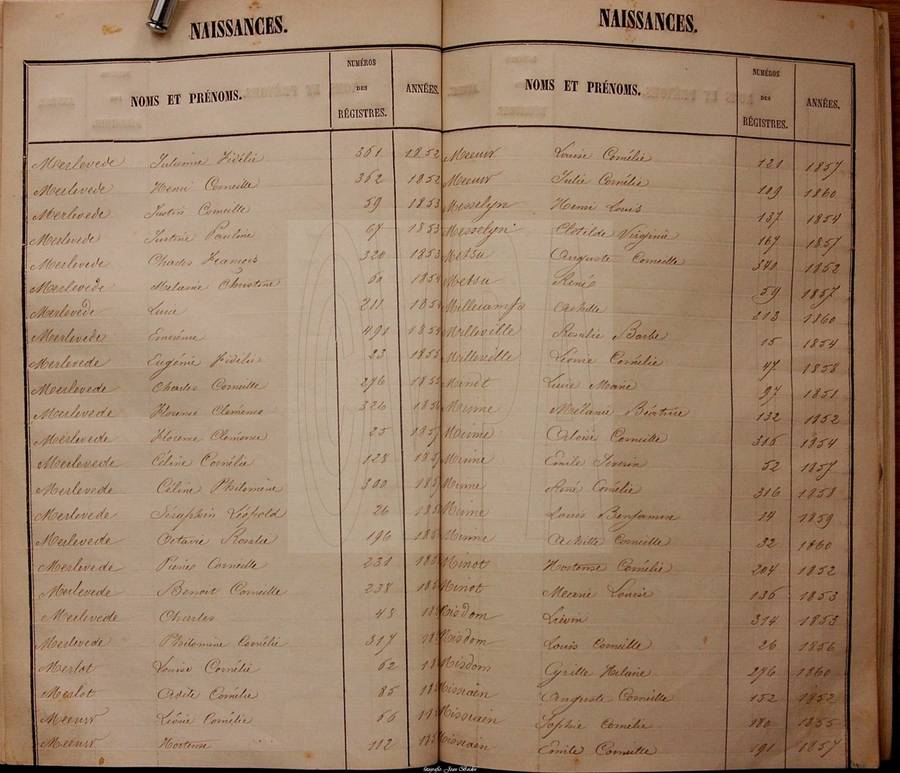 NAISSANCES.
NOMS ET PRÉNOMS. NUMÉROS DES RÉGISTRES. ANNÉES.
Merlevede 361 1852
Merlevede Henri Corneille 362 1852
Merlevede Justin Corneille 59 1853
Merlevede Justine Pauline 67 1853
Merlevede Charles François 320 1853
Merlevede Melanie Christine 60 1854
Merlevede Lucie 211 1854
Merlevede 491 1854
Merlevede Eugénie Fidélie 23 1855
Merlevede Charles Corneille 276 1855
Merlevede Florence Clemence 326 1856
Merlevede Florence Clemence 25 1857
Merlevede Céline Cornélie 128
Merlevede Céline Philomène 300
Merlevede Séraphin Léopold 26
Merlevede Octavie Rosalie 196
Merlevede Pierre Corneille 231
Merlevede Benoit Corneille 238
Merlevede Charles 48
Merlevede Philomine Cornélie 317
Merlot Louise Cornélie 62
Merlot Adèle Cornélie 85
Meeuw Léonie Cornélie 66
Meeuw Hortense 112
NAISSANCES.
NOMS ET PRÉNOMS. NUMÉROS DES RÉGISTRES. ANNÉES.
Meeuw Louise Cornélie 121 1857
Meeuw Julie Cornélie 189 1860
Messelyn Henri Louis 137 1854
Messelyn Clotilde Virginie 167 1857
Metsu Auguste Corneille 340 1852
Metsu René 59 1857
Millecamps Achille 213 1860
Milleville Rosalie Barbe 15 1854
Milleville Léonie Cornélie 47 1858
Lucie Marie 97 1851
Minne Mélanie Béatrice 132 1852
Minne Aloïse Corneille 315 1854
Minne Emile Séverin 52 1857
Minne René Cornélie 316 1858
Minne Louis Benjamin 14 1859
Minne Achille Corneille 32 1860
Minot Hortense Cornélie 204 1852
Minot Marie Louise 136 1853
Misdom Liévin 314 1853
Misdom Louis Corneille 26 1856
Misdom Cyrille Hilaire 276 1860
Missiaen Auguste Corneille 152 1852
Missiaen Sophie Cornélie 180 1855
Missiaen Emile Corneille 191 1857